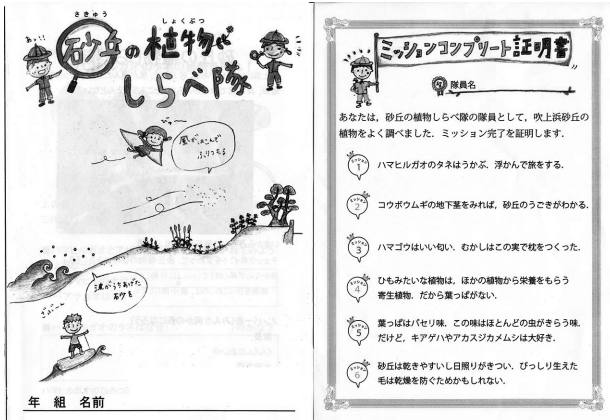 さきゅう しょくぶつ
砂丘の植物
しらべ隊
風がはこんで
ふりつもる
波がうちあげた
砂を
ざぶーん
年 組 名前
ミッションコンプリート証明書
隊員名
あなたは，砂丘の植物しらべ隊の隊員として，吹上浜砂丘の
植物をよく調べました．ミッション完了を証明します．
ミッション
1
ハマヒルガオのタネはうかぶ．浮かんで旅をする．
ミッション
2
コウボウムギの地下茎をみれば，砂丘のうごきがわかる．
ミッション
3
ハマゴウはいい匂い．むかしはこの実で枕をつくった．
ミッション
4
ひもみたいな植物は，ほかの植物から栄養をもらう
寄生植物．だから葉っぱがない．
ミッション
5
葉っぱはパセリ味．この味はほとんどの虫がきらう味．
だけど，キアゲハやアカスジカメムシは大好き．
ミッション
6
砂丘は乾きやすいし日照りがきつい．びっしり生えた
毛は乾燥を防ぐためかもしれない．